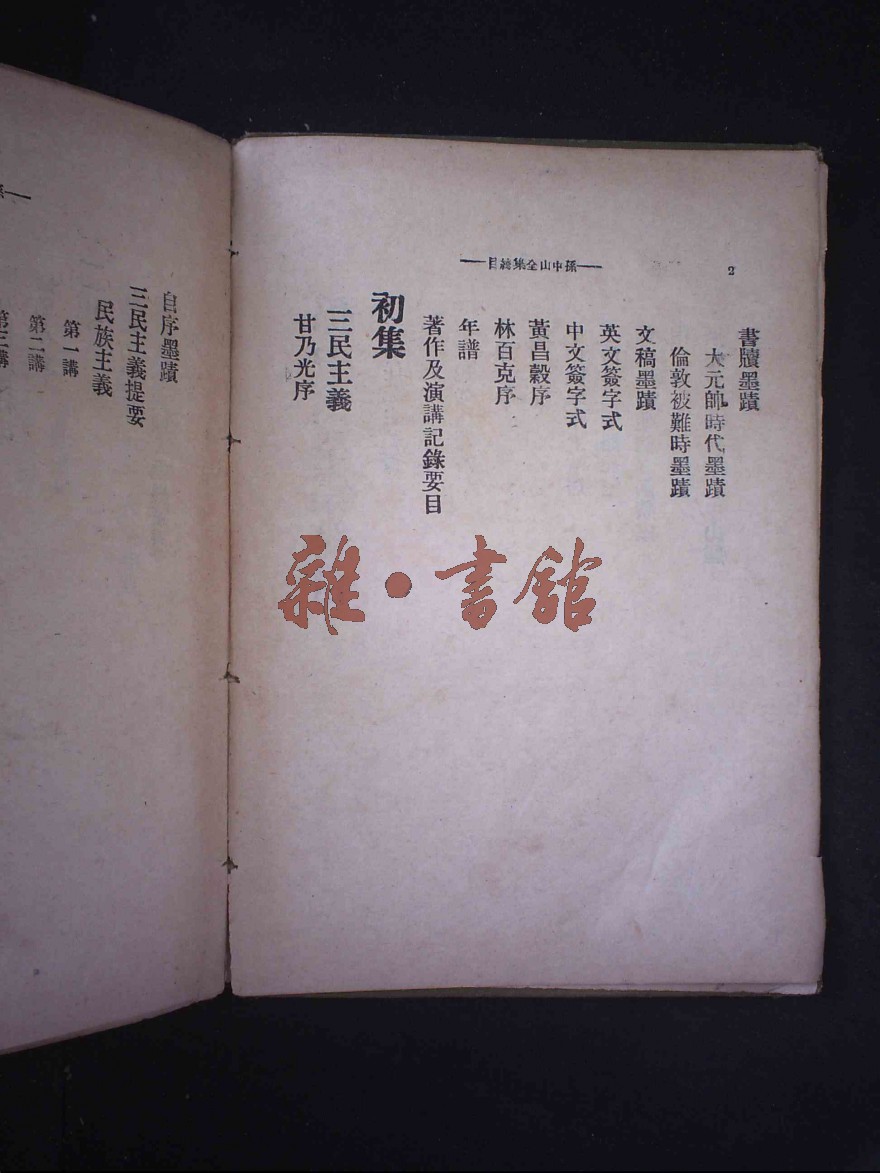 2
——孫中山全集總目——
書牘墨蹟
大元帥時代墨蹟
倫敦被難時墨蹟
文稿墨蹟
英文簽字式
中文簽字式
黃昌穀序
林百克序
年譜
著作及演講記錄要目
初集
三民主義
甘乃光序
自序墨蹟
三民主義提要
民族主義
第一講
第二講
第三講
雜·書館